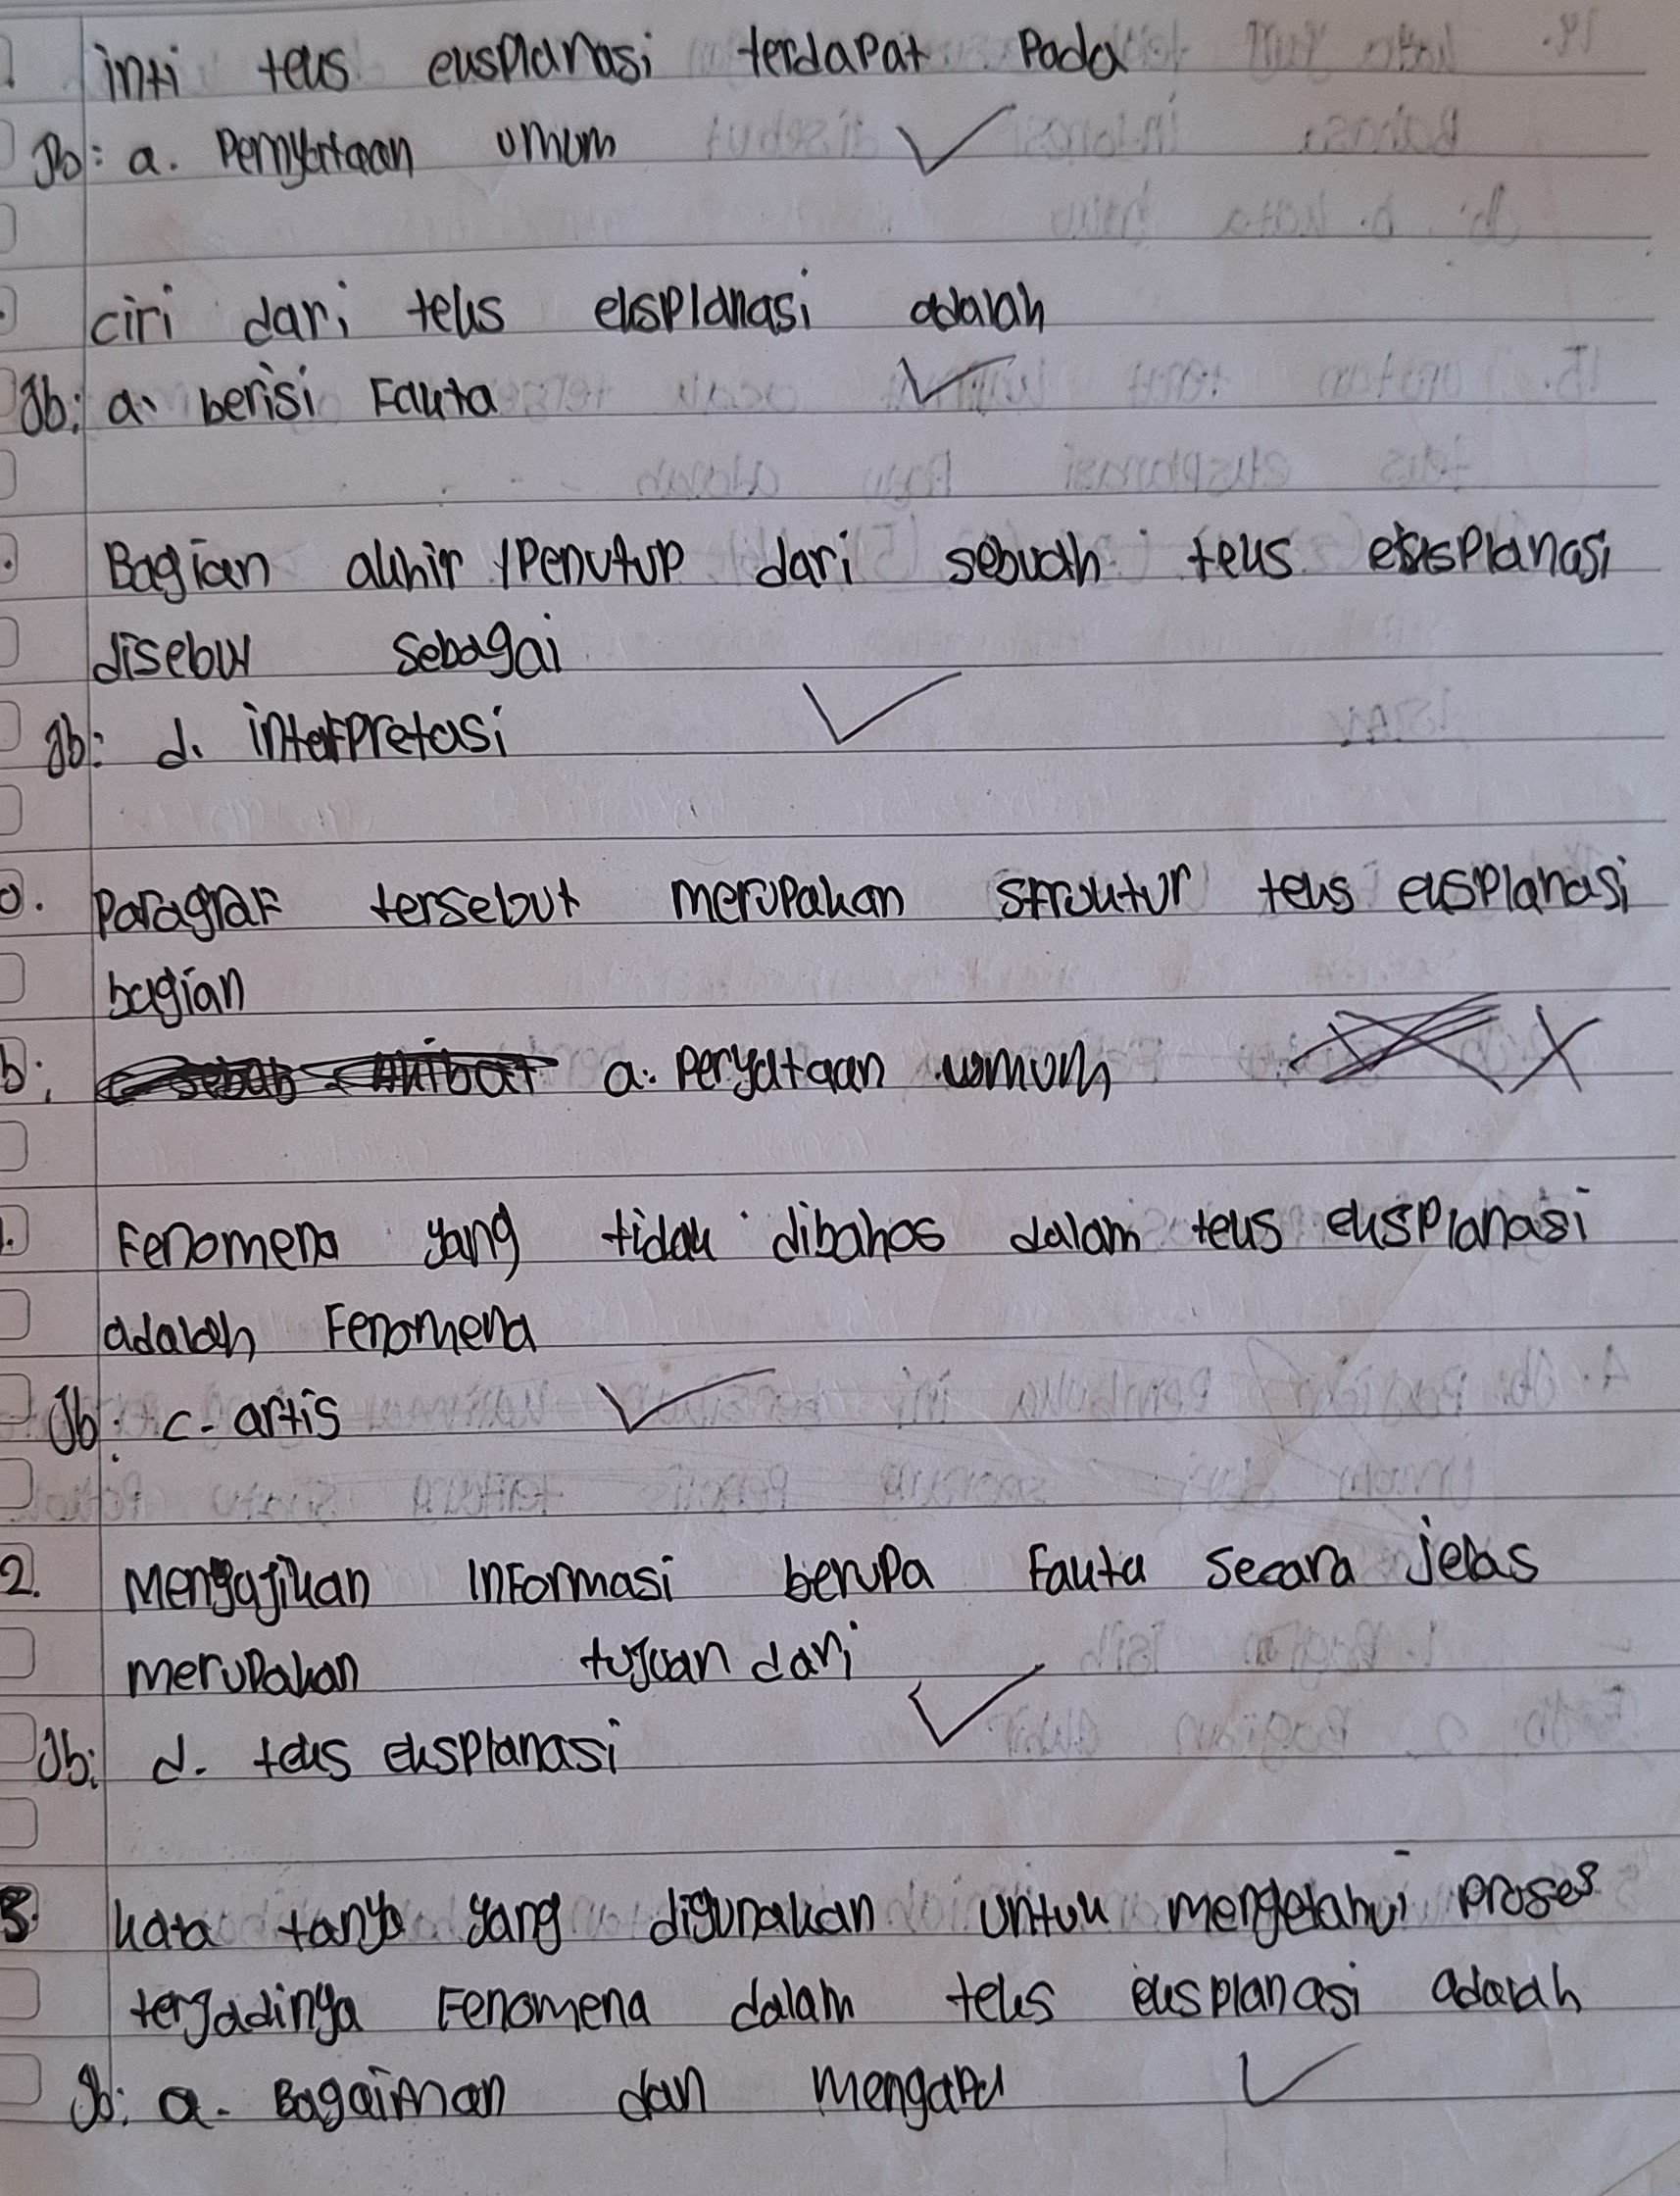 inti teks eksplanasi terdapat pada
Jb: a. Pernyataan umum
ciri dari teks eksplanasi adalah
Jb: a. berisi Fakta
Bagian akhir / Penutup dari sebuah teks eksplanasi
disebut sebagai
Jb: d. interpretasi
0. Paragraf tersebut merupakan struktur teks eksplanasi
bagian
b: a. Peryataan umum
1. Fenomena yang tidak dibahas dalam teks eksplanasi
adalah Fenomena
Jb: c. artis
2. Mengajikan Informasi berupa Fakta secara jelas
merupakan tujuan dari
Jb: d. teks eksplanasi
3. kata tanya yang digunakan untuk mengetahui proses
terjadinya Fenomena dalam teks eksplanasi adalah
Jb: a. Bagaiman dan mengapa